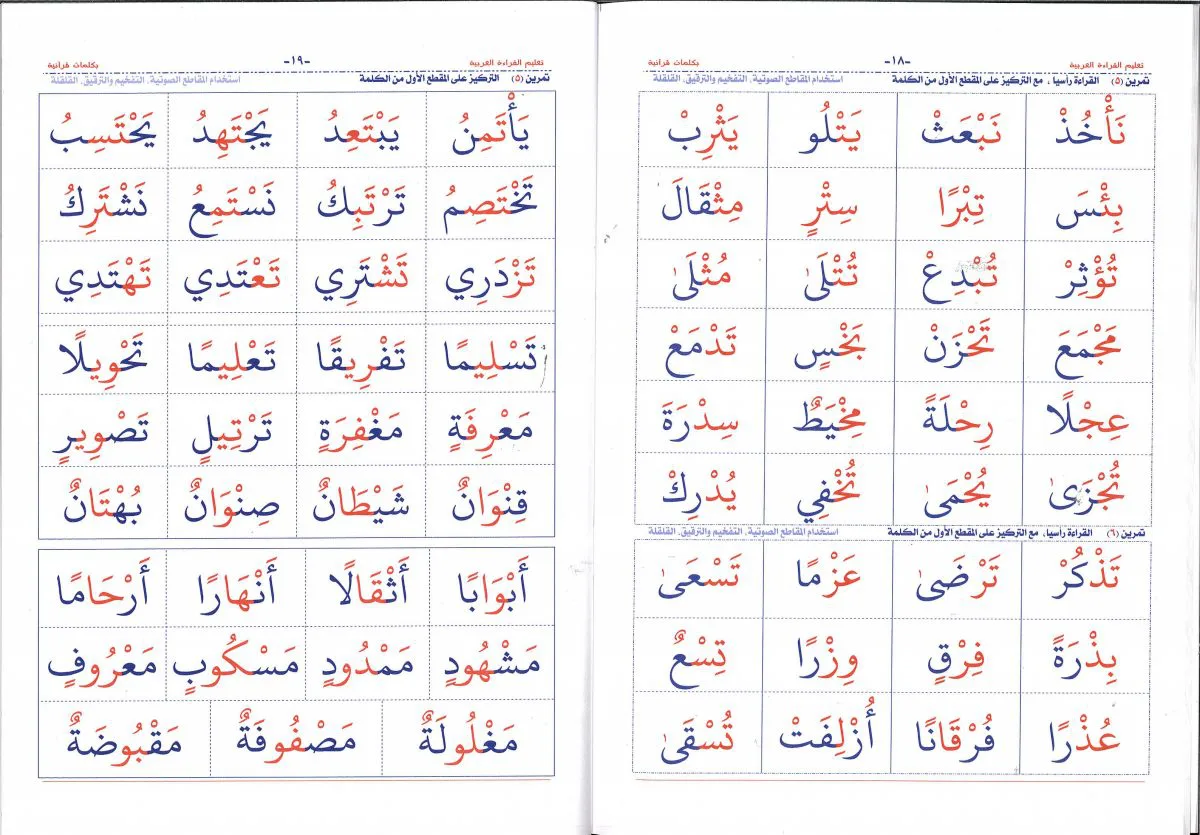 تعليم القراءة العربية -١٨- بكلمات قرآنية
تمرين (٥) القراءة رأسيا، مع التركيز على المقطع الأول من الكلمة استخدام المقاطع الصوتية، التفخيم والترقيق، القلقلة
نَأْخُذْ نَبْعَثْ يَتْلُو يَثْرِبْ
بِئْسَ تِبْرًا سِتْرٍ مِثْقَالَ
تُؤْثِرْ تُبْدِعْ تُتْلَىٰ مُثْلَىٰ
مَجْمَعَ تَحْزَنْ بَخْسٍ تَدْمَعْ
عِجْلًا رِحْلَةً مِخْيَطٌ سِدْرَةَ
تُجْزَىٰ يُحْمَىٰ تُخْفِي يُدْرِكْ
تمرين (٦) القراءة رأسيا، مع التركيز على المقطع الأول من الكلمة استخدام المقاطع الصوتية، التفخيم والترقيق، القلقلة
تَذْكُرْ تَرْضَىٰ عَزْمًا تَسْعَىٰ
بِذْرَةً فِرْقٍ وِزْرًا تِسْعٌ
عُذْرًا فُرْقَانًا أُزْلِفَتْ تُسْقَىٰ
تعليم القراءة العربية -١٩- بكلمات قرآنية
تمرين (٥) التركيز على المقطع الأول من الكلمة استخدام المقاطع الصوتية، التفخيم والترقيق، القلقلة
يَأْتَمِنُ يَبْتَعِدُ يَجْتَهِدُ يَحْتَسِبُ
تَخْتَصِمُ تَرْتَبِكُ نَسْتَمِعُ نَشْتَرِكُ
تَزْدَرِي تَشْتَرِي تَعْتَدِي تَهْتَدِي
تَسْلِيمًا تَفْرِيقًا تَعْلِيمًا تَحْوِيلًا
مَعْرِفَةٍ مَغْفِرَةٍ تَرْتِيلٍ تَصْوِيرٍ
قِنْوَانٌ شَيْطَانٌ صِنْوَانٌ بُهْتَانٌ
أَبْوَابًا أَثْقَالًا أَنْهَارًا أَرْحَامًا
مَشْهُودٍ مَمْدُودٍ مَسْكُوبٍ مَعْرُوفٍ
مَغْلُولَةٌ مَصْفُوفَةٌ مَقْبُوضَةٌ